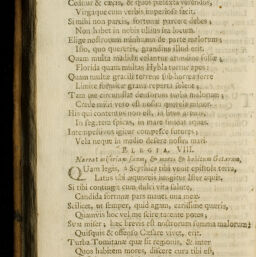 Cedimus & cæcis, & quos prætexta verendos,
Virgaque cum verbis imperiosa facit.
Si mihi non parcis, fortunæ parcere debes;
Non habet in nobis ullius ira locum.
Elige nostrorum minimum de parte malorum;
Isto, quo quereris, grandius illud erit.
Quam multa madidæ celantur arundine fossæ,
Florida quam multas Hybla tuetur apes:
Quam multæ gracili terrena sub horrea ferre
Limite formicæ grana reperta solent;
Tam me circumstat densorum turba malorum:
Crede mihi vero est nostra querela minor.
His qui contentus non est, in litus arenas,
In segetem spicas, in mare fundat aquas.
Intempestivos igitur compesce tumores;
Vela neque in medio desere nostra mari.
ELEGIA. VIII.
Narrat miseriam suam, & mores & habitum Getarum.
QUam legis, à Scythica tibi venit epistola terra,
Latus ubi æquoreis jungitur Ister aquis.
Si tibi contingit cum dulci vita salute,
Candida fortunæ pars manet una meæ.
Scilicet, ut semper, quid agam, carissime quæris,
Quamvis hoc vel me scire tacente potes;
Sum miser; hæc brevis est nostrorum summa malorum:
Quisquis & offenso Cæsare vivit, erit.
Turba Tomitanæ quæ sit regionis, & inter
Quos habitem mores, discere cura tibi est,